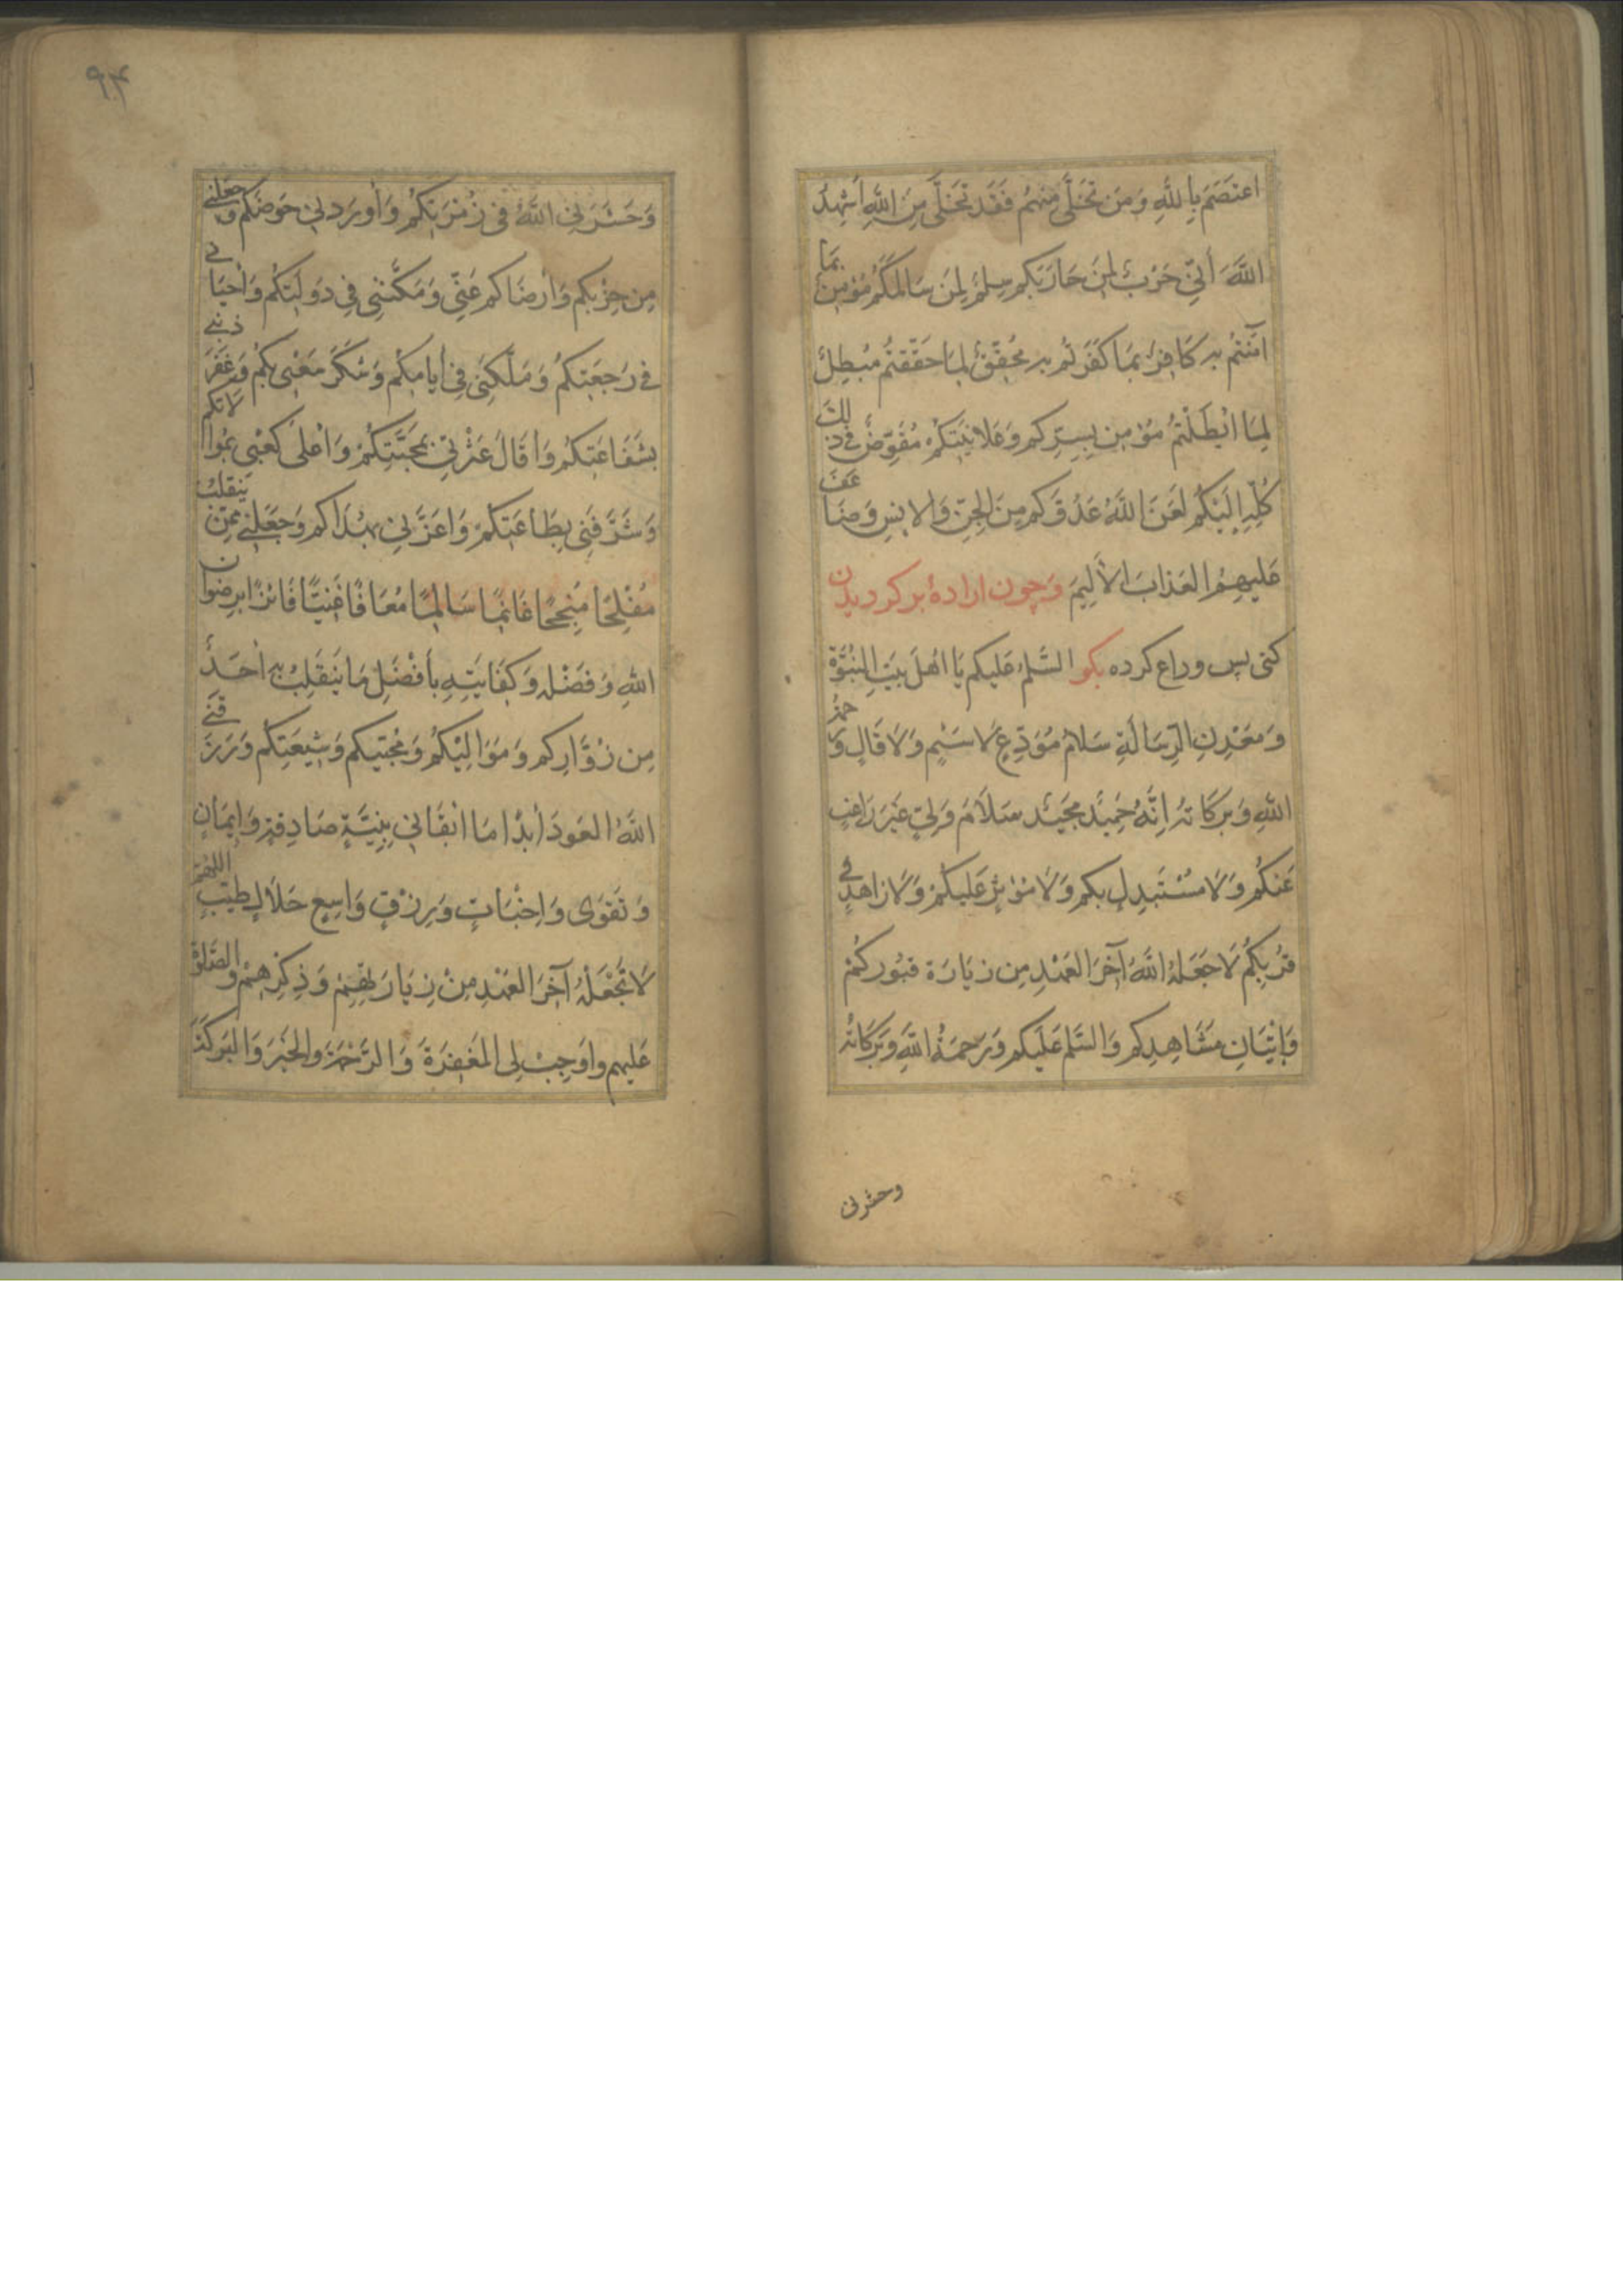 اعتَصَمَ بِاللهِ وَمَن تَخَلّى مِنهُم فَقَد تَخَلّى مِنَ اللهِ اُشهِدُ
اللهَ أَنّي حَربٌ لِمَن حَارَبَكُم سِلمٌ لِمَن سَالَمَكُم مُؤمِنٌ بِمَا
آمَنتُم بِهِ كَافِرٌ بِمَا كَفَرتُم بِهِ مُحَقِّقٌ لِمَا حَقَّقتُم مُبطِلٌ
لِمَا ابطَلتُم مُؤمِن بِسِرِّكُم وَعَلانِيَتِكُم مُفَوِّضٌ فِي ذلِكَ
كُلِّهِ اِلَيكُم لَعَنَ اللهُ عَدُوَّكُم مِنَ الجِنِّ وَالاِنسِ وَضَاعَفَ
عَلَيهِمُ العَذابَ الأَلِيمَ وَچون ارادهٔ برگردیدن
کنی پس وداع کرده بگو السَّلَمُ عَلَيكُم يَا اهلَ بَيتِ النُبُوَّةِ
وَمَعدِنِ الرِّسَالَةِ سَلامُ مُوَدِّعٍ لا سَئِمٍ وَلا قَالٍ وَرَحمَةُ
اللهِ وَبَرَكَاتُهُ اِنَّهُ حَمِيدٌ مَجِيدٌ سَلامَ وَلِيٍّ غَيرَ رَاغِبٍ
عَنكُم وَلا مُستَبدِلٍ بِكُم وَلا مُؤثِرٍ عَلَيكُم وَلا زَاهِدٍ فِي
قُربِكُم لا جَعَلَهُ اللهُ آخِرَ العَهدِ مِن زِيَارَةِ قُبُورِكُم
وَاِتيَانِ مَشَاهِدِكُم وَالسَّلَمُ عَلَيكُم وَرَحمَةُ اللهِ وَبَرَكَاتُهُ
وحشرنی
٩٤
وَحَشَرَنِي اللهُ فِي زُمرَتِكُم وَأَورَدَنِي حَوضَكُم وَجَعَلَنِي
مِن حِزبِكُم وَارضَاكُم عَنِّي وَمَكَّنَنِي فِي دَولَتِكُم وَاَحيَانِي
فِي رَجعَتِكُم وَمَلَّكَنِي فِي أَيامِكُم وَشَكَرَ سَعيِي بِكُم وَغَفَرَ ذَنبِي
بِشَفَاعَتِكُم وَأَقَالَ عَثرَتِي بِمَحَبَّتِكُم وَاَعلَى كَعبِي بِمُوالاتِكُم
وَشَرَّفَنِي بِطَاعَتِكُم وَاَعَزَّنِي بِهُدَاكُم وَجَعَلَنِي مِمَّن يَنقَلِبُ
مُفلِحًا مُنجِحًا غَانِمًا سَالِمًا مُعَافًا غَنِيًّا فَائِزًا بِرِضوانِ
اللهِ وَفَضلِهِ وَكِفَايَتِهِ بِأَفضَلِ مَا يَنقَلِبُ بِهِ أَحَدٌ
مِن زُوَّارِكُم وَمَوَالِيكُم وَمُحِبِّيكُم وَشِيعَتِكُم وَرَزَقَنِي
اللهُ العَودَ أَبَدًا مَا ابقَانِي بِنِيَّةٍ صَادِقَةٍ وَاِيمَانٍ
وَتَقوَى وَاِخبَاتٍ وَرِزقٍ وَاسِعٍ حَلالٍ طَيِّبٍ اللهُمَّ
لا تَجعَلهُ آخِرَ العَهدِ مِن زِيَارَتِهِم وَذِكرِهِم وَالصَّلوةِ
عَلَيهِم وَاَوجِب لِي المَغفِرَةَ وَالرَّحمَةَ وَالخَيرَ وَالبَرَكَةَ